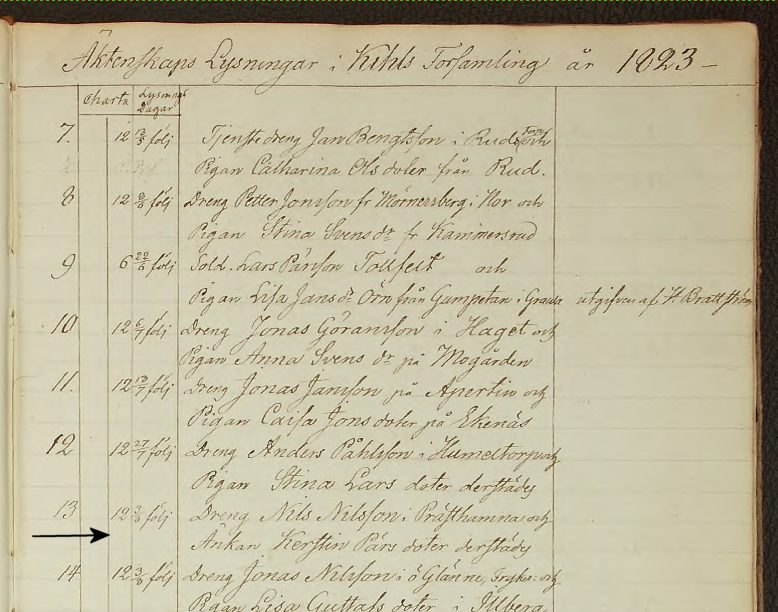 Äktenskaps Lysningar i Kihls Församling år 1823 -
Charta Lysnings Dagar
7. 12 följ Tjenstedreng Jan Bengtsson i Ruds och
Pigan Catharina Ols doter från Rud.
8 12 följ Dreng Petter Jonsson fr Mörnersberg i Nor och
Pigan Stina Svens dr fr Kammersrud
9 6 22/6 följ Sold. Lars Pärsson Tolfeit och
Pigan Lisa Jans dr Örn från Gumpetan i Grava utgifven af H Brattström
10 12 6/7 följ Dreng Jonas Göransson i Haget och
Pigan Anna Svens dr på Mogården
11. 12 13/7 följ Dreng Jonas Jansson på Apertin och
Pigan Caisa Jons doter på Ekenäs
12 12 27/7 följ Dreng Anders Påhlsson i Humeltorp och
Pigan Stina Lars doter derstädes
13 12 följ Dreng Nils Nilsson i Prästhamna och
Änkan Kerstin Pärs doter derstädes
14 12 följ Dreng Jonas Nilsson i ö Glänne, Fryks: och
Pigan Lisa Gustafs doter i Illberg